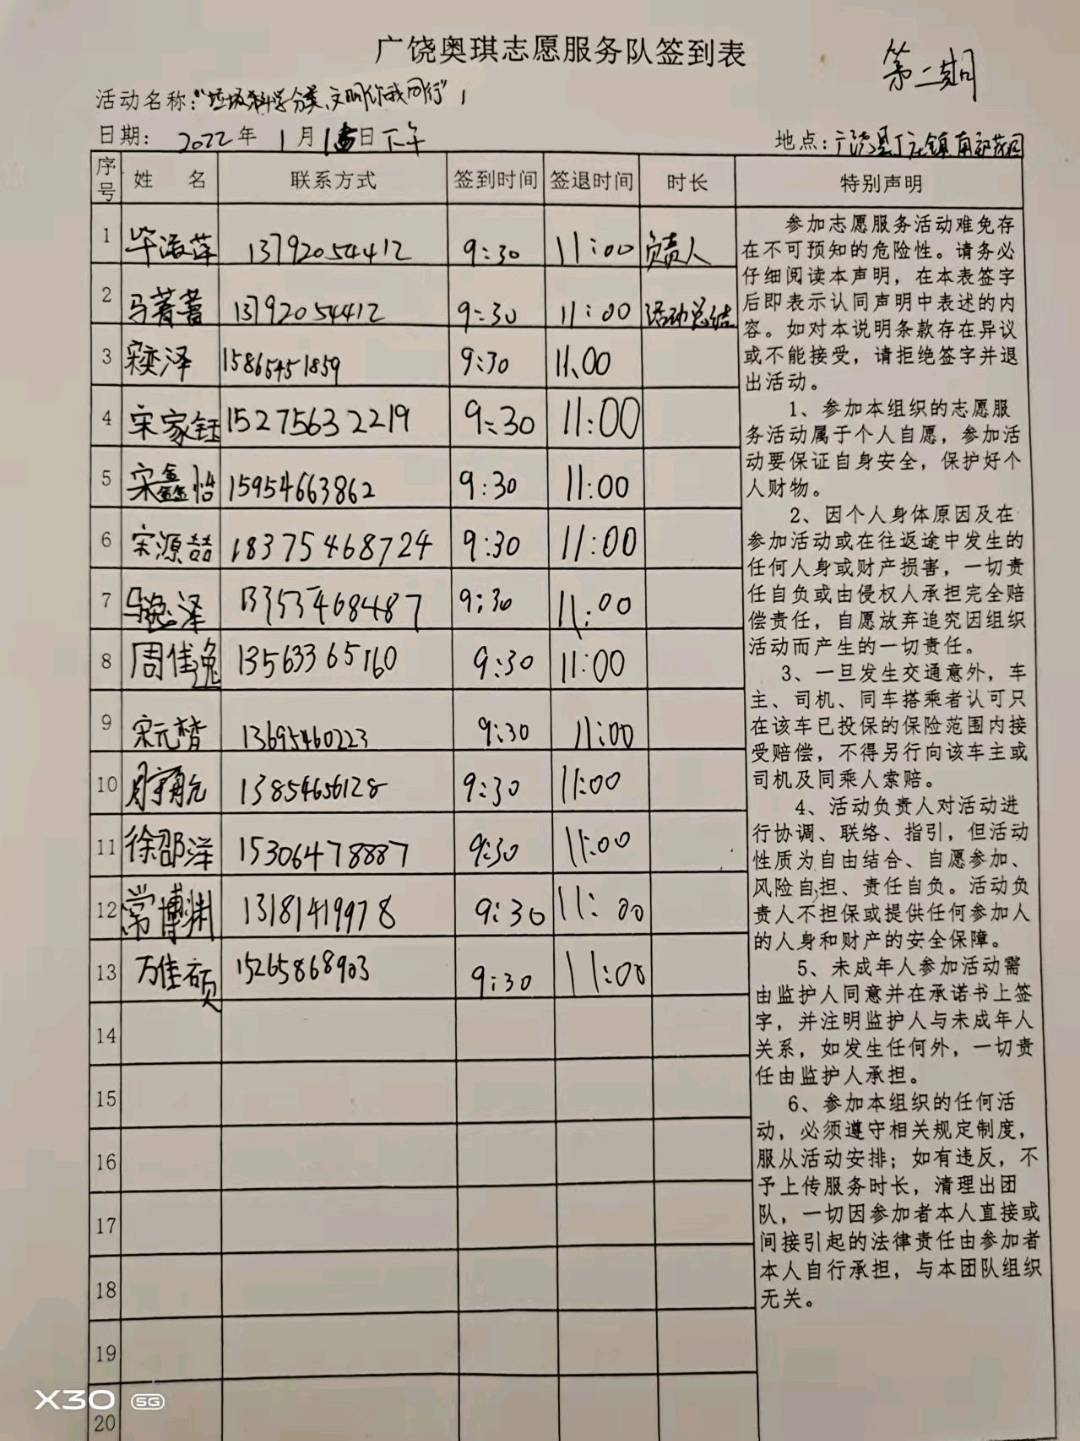 广饶奥琪志愿服务队签到表
第二期
活动名称："垃圾科学分类,文明你我同行"
日期： 2022年 1月 15日 下午
地点：广饶县 镇
序号 姓 名 联系方式 签到时间 签退时间 时长 特别声明
1 毕淑萍 13792054412 9:30 11:00 负责人
2 马菁菁 13792054412 9:30 11:00 活动总结
3 宋奕泽 15865451859 9:30 11:00
4 宋家钰 15275632219 9:30 11:00
5 宋鑫怡 15954663862 9:30 11:00
6 宋源喆 18375468724 9:30 11:00
7 马逸泽 13353468487 9:30 11:00
8 周佳逸 13563365160 9:30 11:00
9 宋元梦 13695460223 9:30 11:00
10 13854656128 9:30 11:00
11 徐邵洋 15306478887 9:30 11:00
12 常博渊 13181419978 9:30 11:00
13 万佳硕 15265868903 9:30 11:00
14
15
16
17
18
19
20
参加志愿服务活动难免存
在不可预知的危险性。请务必
仔细阅读本声明，在本表签字
后即表示认同声明中表述的内
容。如对本说明条款存在异议
或不能接受，请拒绝签字并退
出活动。
1、参加本组织的志愿服
务活动属于个人自愿，参加活
动要保证自身安全，保护好个
人财物。
2、因个人身体原因及在
参加活动或在往返途中发生的
任何人身或财产损害，一切责
任自负或由侵权人承担完全赔
偿责任，自愿放弃追究因组织
活动而产生的一切责任。
3、一旦发生交通意外，车
主、司机、同车搭乘者认可只
在该车已投保的保险范围内接
受赔偿，不得另行向该车主或
司机及同乘人索赔。
4、活动负责人对活动进
行协调、联络、指引，但活动
性质为自由结合、自愿参加、
风险自担、责任自负。活动负
责人不担保或提供任何参加人
的人身和财产的安全保障。
5、未成年人参加活动需
由监护人同意并在承诺书上签
字，并注明监护人与未成年人
关系，如发生任何外，一切责
任由监护人承担。
6、参加本组织的任何活
动，必须遵守相关规定制度，
服从活动安排；如有违反，不
予上传服务时长，清理出团
队，一切因参加者本人直接或
间接引起的法律责任由参加者
本人自行承担，与本团队组织
无关。
X30 5G